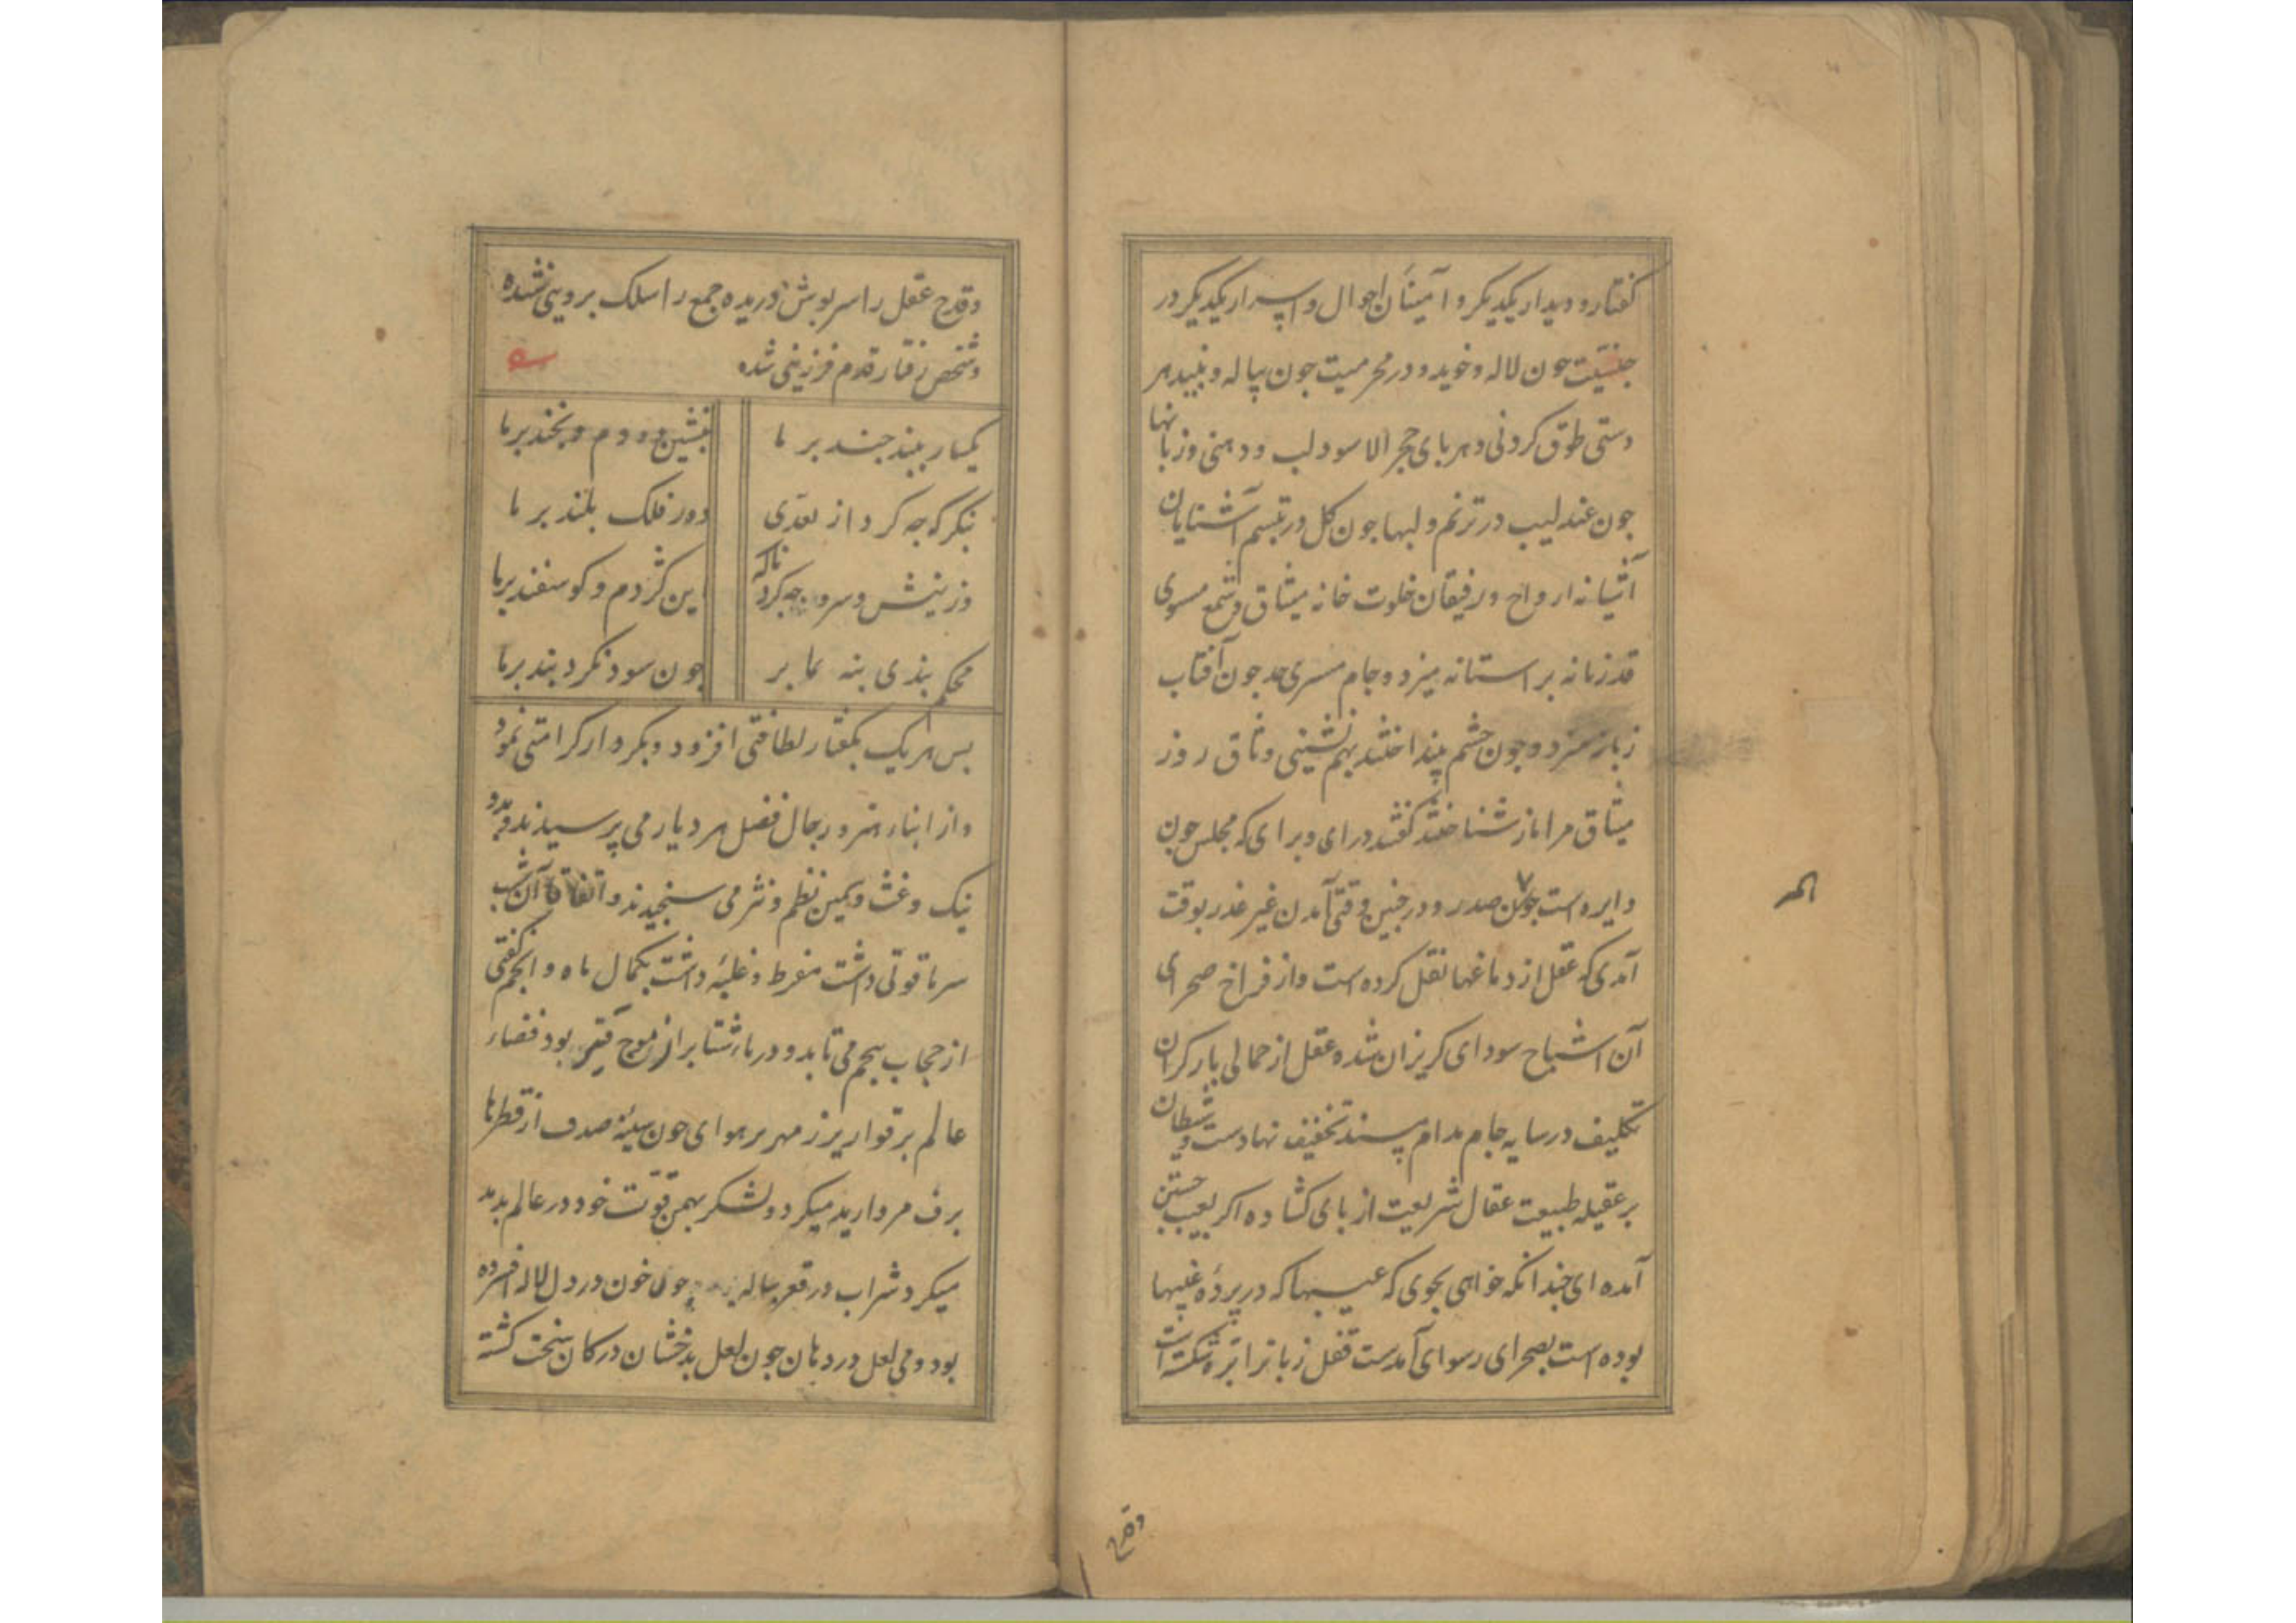 کفتار و دیدار یکدیکر و آمینان احوال و اسرار یکدیکر در
جنسیت جون لاله و خوید و در محرمیت جون پیاله و نبید هر
دستی طوق کردنی و هر بای حجر الاسود لب و دهنی و زبانها
جون عندلیب در ترنم و لبها جون کل در تبسم آشنایان
آشیانه ارواح و رفیقان خلوت خانه میثاق و شمع مسوی
قد زبانه بر استانه میزد و جام مسری خد جون آفتاب
زبانه میزد و جون جشم بینداختند بهم نشینی وثاق روز
میثاق مرا باز شناختند کفتند درای و برای که مجلس جون
دایره است جون صدر و در جنین وقتی آمدن غیر غدر بوقت
آمدی که عقل از دماغها نقل کرده است و از فراخ صحرای
آن اشباح سودای کریزان شده و عقل از حمالی بار کران
تکلیف در سایه جام مدام پسند تخفیف نهادست و شیطان
بر عقیله طبیعت عقال شریعت از بای کشاده اکر بعیب جستن
آمده ای جندانکه خواهی بجوی که عیبها که در پرده غیبها
بوده است بصحرای رسوای آمدست قفل زبانرا تبره شکسته است
المر
وقدح
وقدح عقل را سربوش دریده جمع را سلک بروینی نشده
و شخص رفتار قدم فرزینی شده
یکبار ببند جند بر ما
بنشین دو دم و بخند بر ما
بنکر که جه کرد از تعدی
دور فلک بلند بر ما
وز نیش و سرو جه کرد ناکه
این کژدم و کوسفند بر ما
محکم بندی بنه بما بر
جون سود نکرد بند بر ما
بس هر یک بکفتار لطافتی افزود و بکردار کرامتی نمود
و از ابناء هنر و رجال فضل هر دیار می پرسیدند و بد و
نیک و غث و سمین نظم و نثر می سنجیدند و اتفاقا آن شب
سرما قوتی داشت مفرط و غلبه داشت بکمال ماه و انجم کفتی
از حجاب بیجم می تابد و دریاء شتا بر از موج قیر بود فضاء
عالم بر قواریر زمهریر هوای جون سینه صدف از قطرها
برف مروارید میکرد و لشکر بهمن قوت خود در عالم بدید
میکرد شراب در قعر بیاله جون خون در دل لاله افسرده
بود و می لعل در دهان جون لعل بدخشان در کان سخت کشته